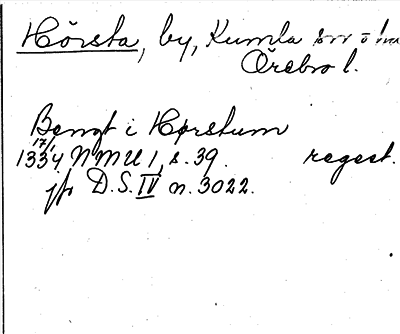 Hörsta, by, Kumla sn o hd
Örebro l.
Bengt i Hørstum
17/1
1334, NMU 1, s. 39. regest.
jfr D.S. IV n. 3022.